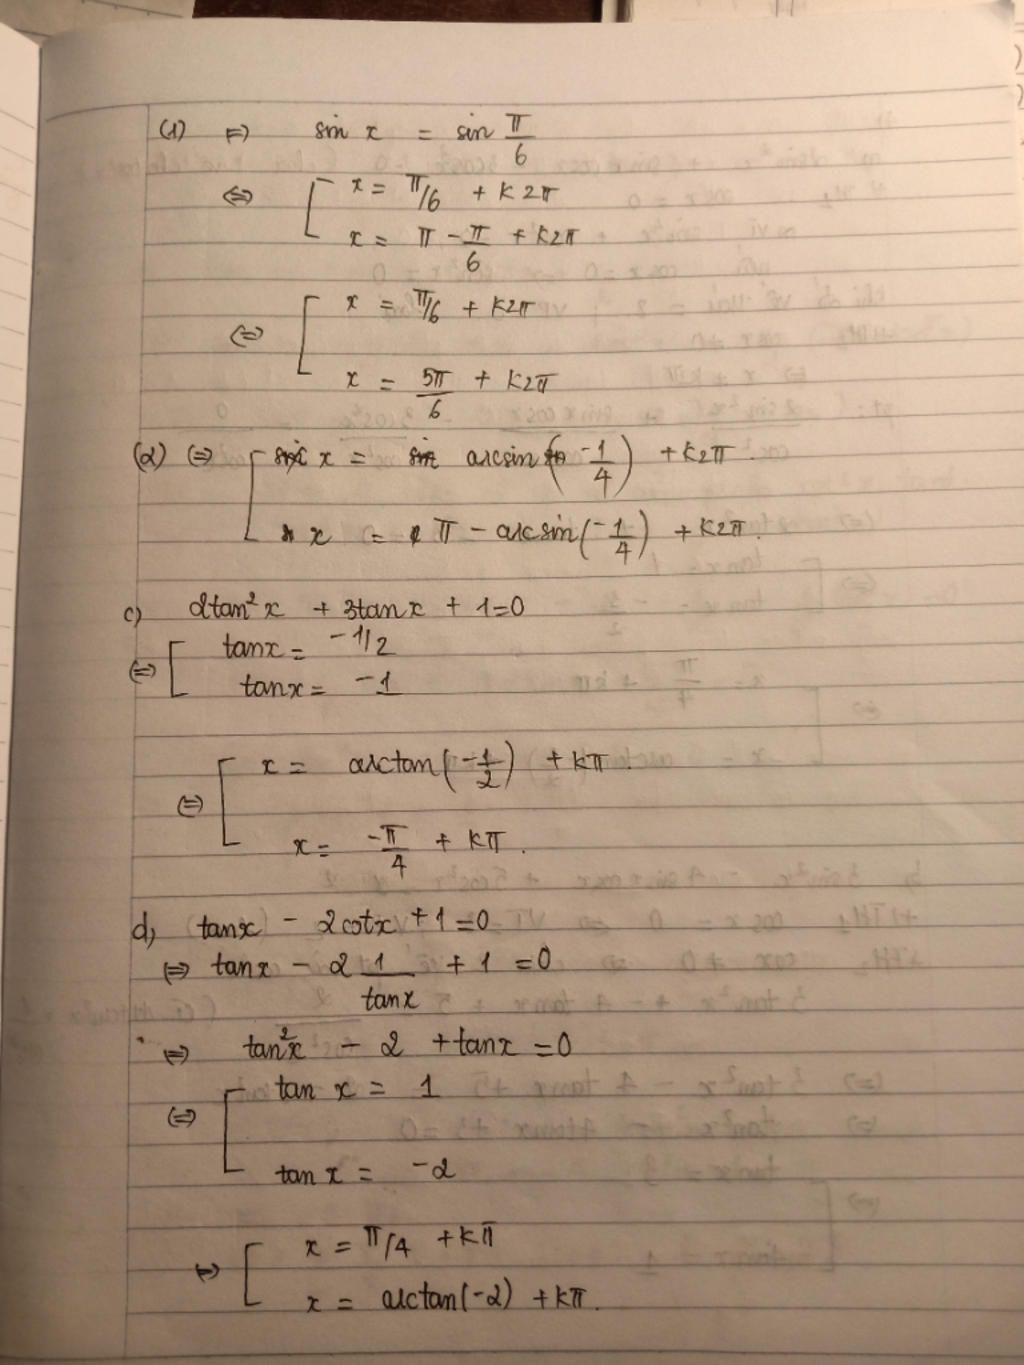 (1) ⇔ sin x = sin π/6
⇔ [ x = π/6 + k2π
x = π - π/6 + k2π
⇔ [ x = π/6 + k2π
x = 5π/6 + k2π
(2) ⇔ [ x = arcsin(-1/4) + k2π.
x = π - arcsin(-1/4) + k2π.
c) 2tan²x + 3tanx + 1=0
⇔ [ tanx = -1/2
tanx = -1
⇔ [ x = arctan(-1/2) + kπ.
x = -π/4 + kπ.
d, tanx - 2cotx + 1=0
⇔ tanx - 2 1/tanx + 1 =0
⇔ tan²x - 2 + tanx =0
⇔ [ tan x = 1
tan x = -2
⇔ [ x = π/4 + kπ
x = arctan(-2) + kπ.